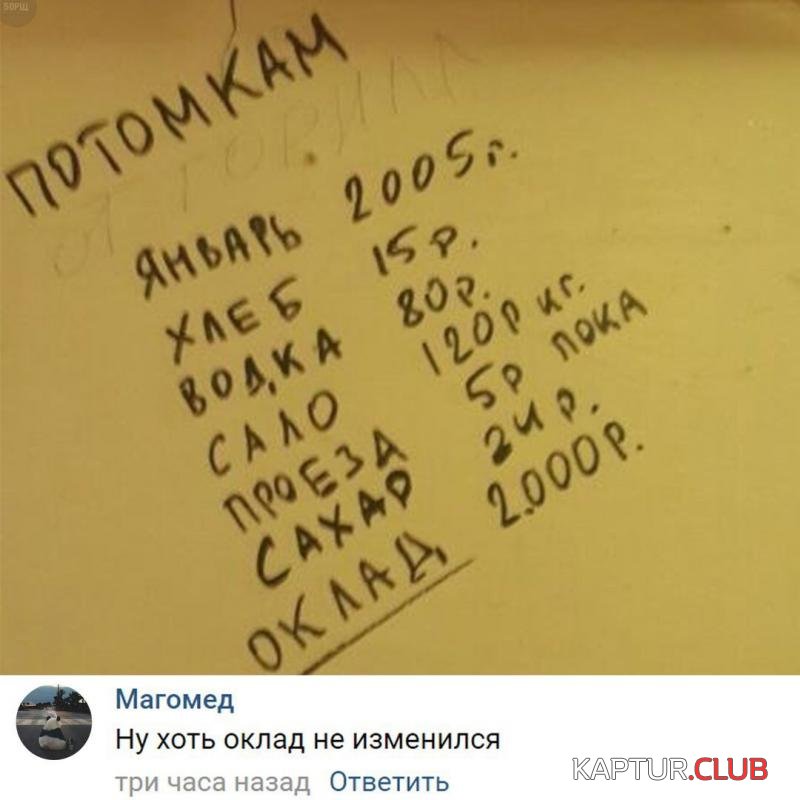 БОРЩ
ПОТОМКАМ
ЯНВАРЬ 2005г.
ХЛЕБ 15р.
ВОДКА 80р.
САЛО 120р кг.
ПРОЕЗД 5р ПОКА
САХАР 24р.
ОКЛАД 2.000р.
Магомед
Ну хоть оклад не изменился
три часа назад Ответить
KAPTUR.CLUB